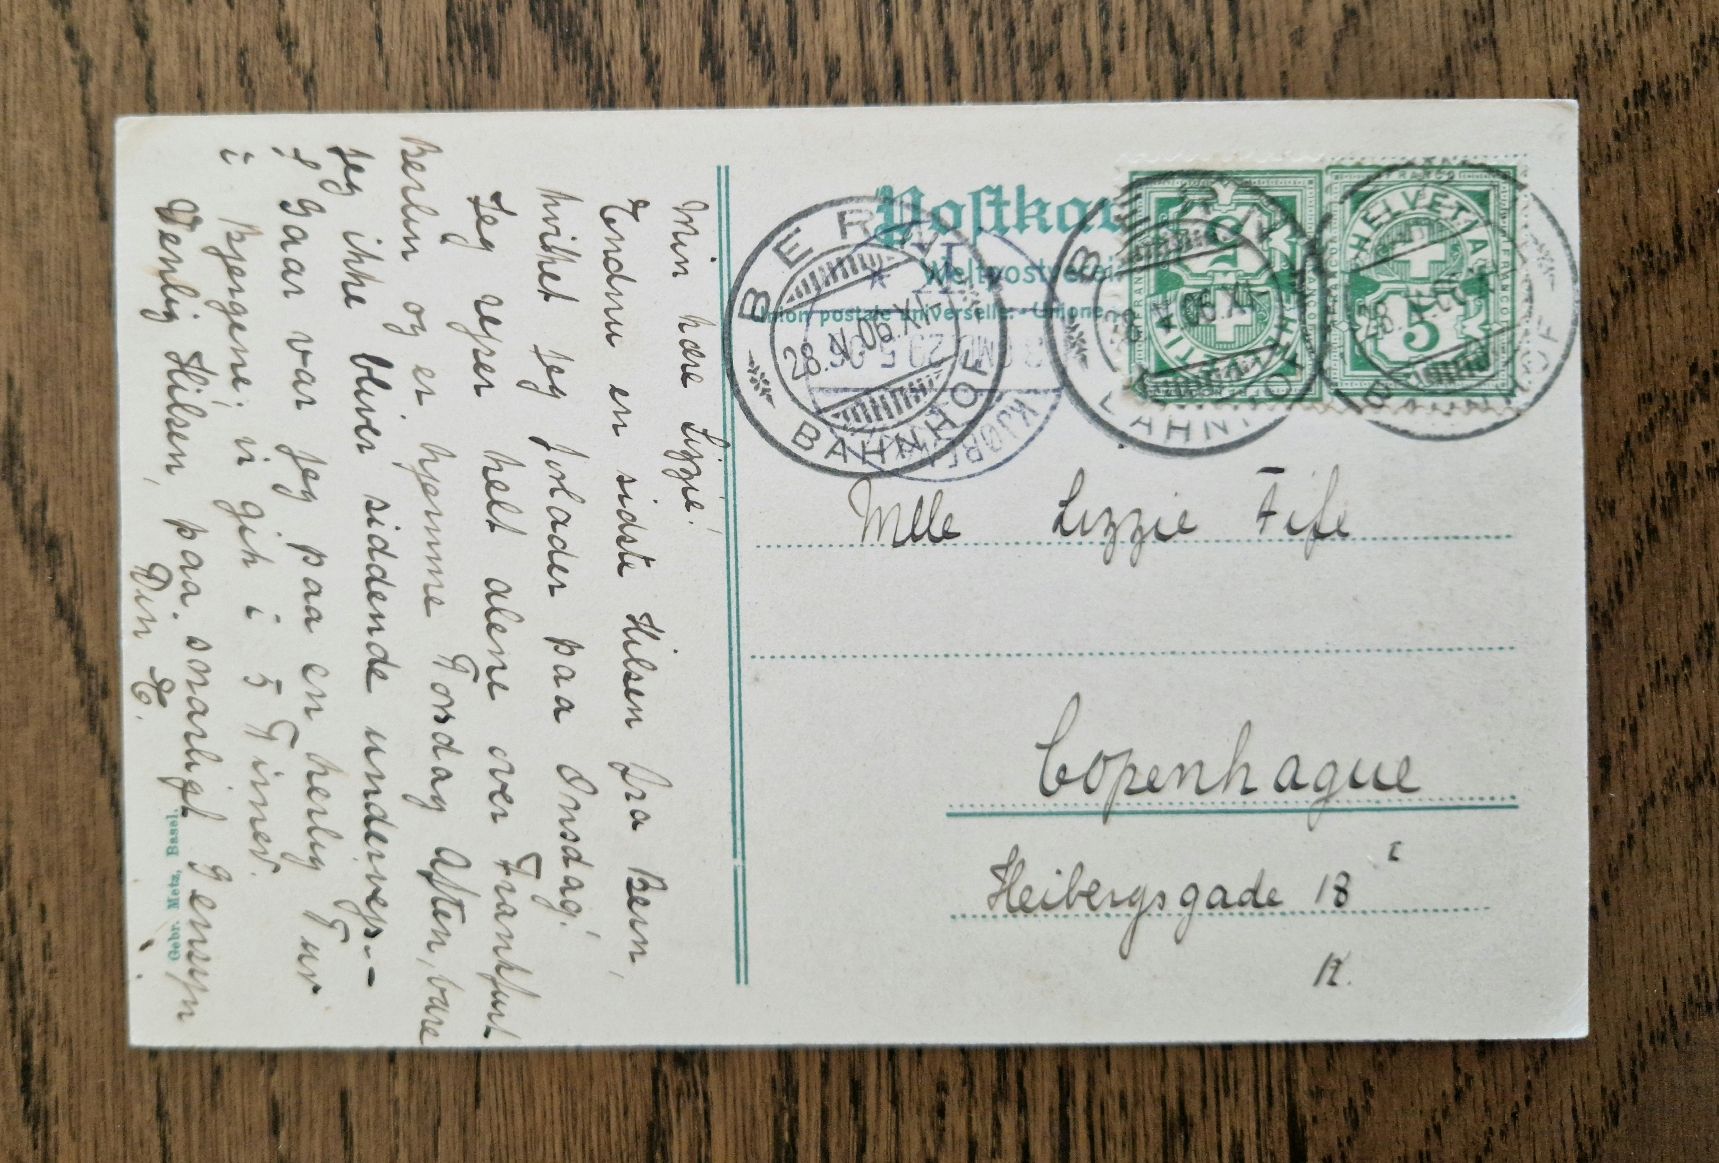 Min kære Lizzie!
Endnu en sidste Hilsen fra Bern,
hvilket jeg forlader paa Onsdag!
Jeg rejser helt alene over Frankfurt
Berlin og er hjemme Torsdag Aften, bare
jeg ikke bliver siddende undervejs.-
I Gaar var jeg paa en herlig Tur
i Bjergene; vi gik i 5 Timer.
Venlig Hilsen, paa snarligt Gensyn
Din E.
Gebr. Metz, Basel.
Postkar
Weltpostverei
Union postale universelle. - Unione
BERN
28.V.06.XI-
BAHNHOF
29.5.06
KJØBENH
BERN
28.V.06.XI
BAHNHOF
FRANCO
HELVETIA
5
FRANCO
HELVETIA
5
Mlle Lizzie Fife
Copenhague
Heibergsgade 18 I
K.